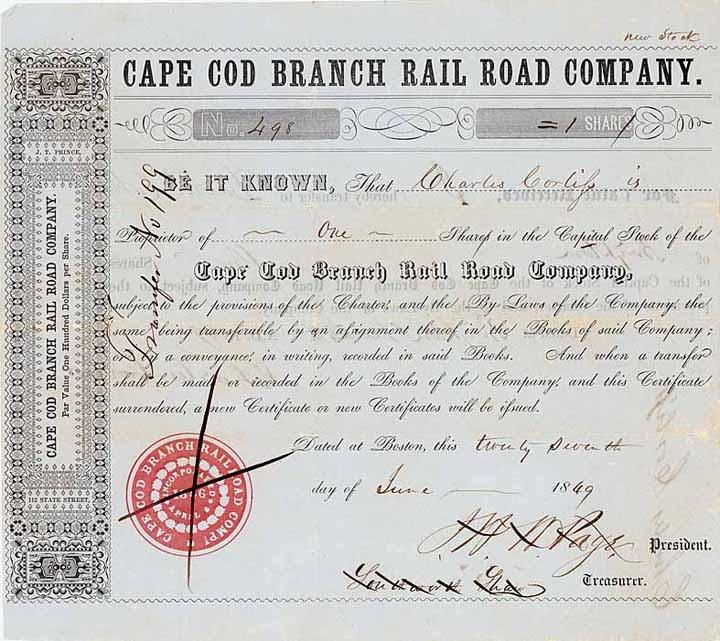 new Stock
CAPE COD BRANCH RAIL ROAD COMPANY.
No. 498 = 1 SHARES
BE IT KNOWN, That Charles Corliſs is
Proprietor of One Shares in the Capital Stock of the
Cape Cod Branch Rail Road Company,
subject to the provisions of the Charter, and the By-Laws of the Company, the
same being transferable by an aſsignment thereof in the Books of said Company;
or a conveyance, in writing, recorded in said Books. And when a transfer
shall be made or recorded in the Books of the Company, and this Certificate
surrendered, a new Certificate or new Certificates will be iſsued.
Dated at Boston, this twenty seventh
day of June 1849
President.
Southworth Shaw
Treasurer.
J. T. PRINCE,
CAPE COD BRANCH RAIL ROAD COMPANY.
Par Value One Hundred Dollars per Share.
112 STATE STREET.
CAPE COD BRANCH RAIL ROAD COMPY
INCORPORATED
APRIL